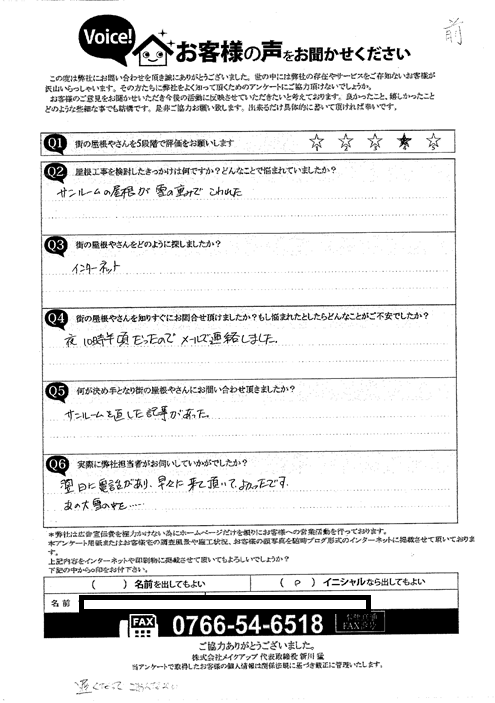 前
Voice!
お客様の声をお聞かせください
この度は弊社にお問い合わせを頂き誠にありがとうございました。世の中には弊社の存在やサービスをご存知ないお客様が
沢山いらっしゃいます。その方たちに弊社をよく知って頂くためのアンケートにご協力頂けないでしょうか。
お客様のご意見をお聞かせいただき今後の活動に反映させていただきたいと考えております。良かったこと、嬉しかったこと
どのような些細な事でも結構です。是非ご協力お願い致します。出来るだけ具体的に書いて頂ければ幸いです。
Q1 街の屋根やさんを5段階で評価をお願いします
1 2 3 4 5
Q2 屋根工事を検討したきっかけは何ですか？どんなことで悩まれていましたか？
サンルームの屋根が雪の重みでこわれた
Q3 街の屋根やさんをどのように探しましたか？
インターネット
Q4 街の屋根やさんを知りすぐにお問合せ頂けましたか？もし悩まれたとしたらどんなことがご不安でしたか？
夜10時半頃だったのでメールで連絡しました。
Q5 何が決め手となり街の屋根やさんにお問い合わせ頂きましたか？
サンルームを直した記事があった。
Q6 実際に弊社担当者がお伺いしていかがでしたか？
翌日に電話があり、早々に来て頂いてよかったです。
あの大雪の中を……
＊弊社は広告宣伝費を極力かけない為にホームページだけを頼りにお客様への営業活動を行っております。
＊本アンケート用紙またはお客様宅の調査風景や施工状況、お客様の似顔絵を随時ブログ形式のインターネットに掲載させて頂いております。
上記内容をインターネットや印刷物に掲載させて頂いてもよろしいでしょうか？
下記の中から○印をお付下さい。
（　）名前を出してもよい （ P ）イニシャルなら出してもよい
名前
FAX 0766-54-6518
FAX番号
ご協力ありがとうございました。
株式会社メイクアップ 代表取締役 新川 猛
当アンケートで取得したお客様の個人情報は関係法規に基づき厳正に管理いたします。
遅くなって ごめんなさい